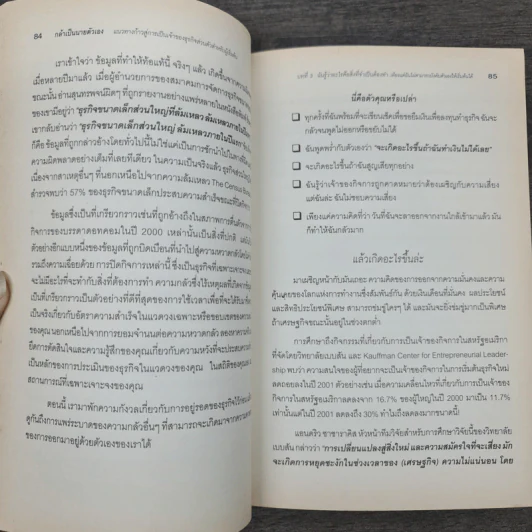 84 กล้าเป็นนายตัวเอง
เราเข้าใจว่า ข้อมูลที่ทำให้ท้อแท้นี้ จริงๆ แล้ว เกิดขึ้นจากความเข้าใจ
เมื่อหลายปีมาแล้ว เมื่อผู้อำนวยการของสมาคมการจัดการธุรกิจ
ขณะนั้น อ่านสุนทรพจน์ผิดๆ ที่ถูกรายงานอย่างแพร่หลายในหนังสือพิมพ์
ของเขามีอยู่ว่า 'ธุรกิจขนาดเล็กส่วนใหญ่ที่ล้มเหลว
เขากลับอ่านว่า 'ธุรกิจขนาดเล็กส่วนใหญ่ ล้มเหลวภายในปีแรก
ก็คือ ข้อมูลที่ถูกกล่าวอ้างโดยทั่วไปนี้ไม่ใช่แค่เป็นการชักนำไปในทางที่ผิด
ความผิดพลาดอย่างเต็มที่เลยทีเดียว ในความเป็นจริงแล้ว ธุรกิจ
เนื่องจากสาเหตุอื่นๆ ที่นอกเหนือไปจากความล้มเหลว The Census
สำรวจพบว่า 57% ของธุรกิจขนาดเล็กประสบความสำเร็จ
ข้อมูลซึ่งเป็นที่เกรียวกราวเช่นที่ถูกอ้างถึงในสภาพการที่
กิจการของบรรดาดอทคอมในปี 2000 เหล่านั้นเป็นสิ่งที่ปกติ
ตัวอย่างอีกแบบหนึ่งของข้อมูลที่ถูกบิดเบือนที่นำไปสู่ความหวาดกลัว
รวมถึงความเฉื่อยด้วย การปิดกิจการเหล่านี้ ซึ่งเป็นธุรกิจที่เฉพาะ
จะไม่มีอะไรที่จะทำกับสิ่งที่ต้องการทำ ความกลัวซึ่งไร้เหตุผล
เป็นที่เกรียวกราวเป็นตัวอย่างที่ดีที่สุดของการใช้เวลาเพื่อที่จะได้รับ
เป็นจริงเกี่ยวกับอัตราความสำเร็จในแวดวงเฉพาะหรือขอบเขต
ของคุณนอกเหนือไปจากการยอมจำนนต่อความหวาดกลัว
ยึดการตัดสินใจและความรู้สึกของคุณเกี่ยวกับความหวังที่จะประสบ
เป็นหลักของการประเมินของธุรกิจในแวดวงของคุณ
สถานการณ์ที่เฉพาะเจาะจงของคุณ
ตอนนี้ เรามาพักความกังวลเกี่ยวกับการอยู่รอดของธุรกิจไว้
ดูกันถึงการแพร่ระบาดของความกลัวอื่นๆ ที่สามารถจะเกิดมาจาก
ของการออกมาอยู่ด้วยตัวเองของเราได้
85
นี่คือตัวคุณหรือเปล่า
ทุกครั้งที่ฉันพร้อมที่จะเขียนเช็คเพื่อขอยืมเงินเพื่อลงทุนทำธุรกิจ ฉันจะ
กลัวจนพูดไม่ออกหรือขยับไม่ได้
ฉันพูดพร่ำกับตัวเองว่า 'จะเกิดอะไรขึ้นถ้าฉันทำเงินไม่ได้เลย'
จะเกิดอะไรขึ้นถ้าฉันสูญเสียทุกอย่าง
ฉันรู้ว่าเจ้าของกิจการถูกคาดหมายว่าต้องเผชิญกับความเสี่ยง
แต่ฉันล่ะ ฉันไม่ชอบความเสี่ยง
เพียงแค่ความคิดที่ว่า วันที่ฉันจะลาออกจากงานใกล้เข้ามาแล้ว มัน
ก็ทำให้ฉันกลัวมาก
แล้วเกิดอะไรขึ้นล่ะ
มาเผชิญหน้ากับมันเถอะ ความคิดของการออกจากความมั่นคงและความ
คุ้นเคยของโลกแห่งการทำงานซึ่งสัมพันธ์กัน ด้วยเงินเดือนที่มั่นคง ผลประโยชน์
และสิทธิประโยชน์พิเศษ สามารถข่มขู่ใครๆ ได้ และมันจะยิ่งข่มขู่มากเป็นพิเศษ
ถ้าเศรษฐกิจขณะนั้นอยู่ในช่วงตกต่ำ
การศึกษาถึงกิจกรรมที่เกี่ยวกับการเป็นเจ้าของกิจการในสหรัฐอเมริกา
ที่จัดโดยวิทยาลัยแบบสัน และ Kauffman Center for Entrepreneurial Leader-
ship พบว่า ความสนใจของผู้ที่อยากจะเป็นเจ้าของกิจการในการเริ่มต้นธุรกิจใหม่
ลดถอยลงในปี 2001 ตัวอย่างเช่น เมื่อความเคลื่อนไหวที่เกี่ยวกับการเป็นเจ้าของ
กิจการในสหรัฐอเมริกาลดลงจาก 16.7% ของผู้ใหญ่ในปี 2000 มาเป็น 11.7%
เท่านั้นแค่ในปี 2001 ลดลงถึง 30% ทำไมถึงลดลงมากขนาดนี้!
แอนดริว ซาชาราคิส หัวหน้าทีมวิจัยสำหรับการศึกษาวิจัยนี้ของวิทยาลัย
แบบสัน กล่าวว่า 'การเปลี่ยนแปลงสู่สิ่งใหม่ และความสมัครใจที่จะเสี่ยง มัก
จะเกิดการหยุดชะงักในช่วงเวลาของ (เศรษฐกิจ) ความไม่แน่นอน โดย